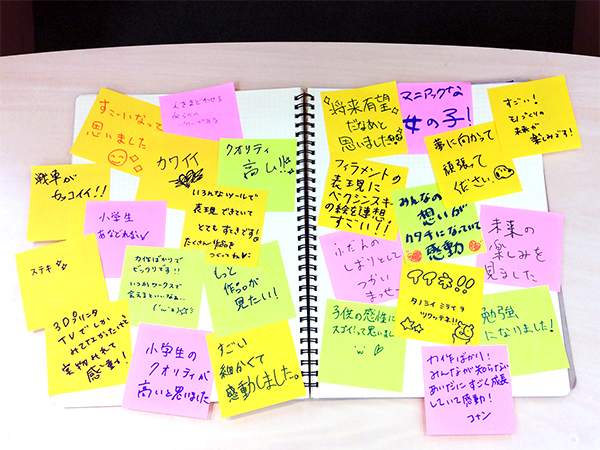 すご〜いなって
思いました
カワイイ
クオリティ
高ム!!
戦車が
カッコイイ!!
小学生
あなどれない
いろんなツールで
表現できていて
とてもすてきです!
たくさん作品を
つくってね
ステキ
力作ばかりで
ビックリです!!
いつかワークスで
会えるといいなぁ…
もっと
作品が
見たい!
3Dプリンタ
TVでしか
実物みれて
感動!
小学生の
クオリティが
高いと思いました
すごい
細かくて
感動しました。
将来有望
だなぁと
思いました
マニアックな
女の子!
すごい!
未来が
楽しみです!
夢に向かって
頑張って
ください
フィラメントの
表現に
ベクシンスキー
の絵を連想
すごい!!
みんなの
想いが
カタチになっていて
感動
ふだんの
しおりとして
つかい
まっせー
未来の
楽しみを
見ました
イイネ!!
タノシイミライヲ
ツクッテネ!!
子供の感性に
スゴイ!って思いました
勉強
になりました!
力作ばかり!
みんなが知らない
あいだにすごく成長
していて感動!
コナン